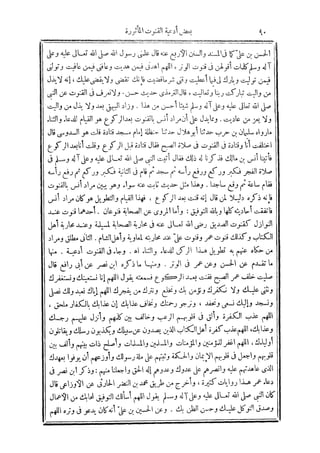 ٩٠ بعض أدعية القنوت المأثورة
الحسن بن علي كما في المسند والسنن الأربع عنه قال علمني رسول الله صلى الله تعالى عليه وعلى
آله وسلم كلمات أقولهن في قنوت الوتر، اللهم اهدني فيمن هديت وعافني فيمن عافيت وتولني
فيمن توليت وبارك لي فيما أعطيت وقني شر ما قضيت فإنك تقضي ولا يقضى عليك، إنه لا يذل
من واليت تباركت ربنا وتعاليت، قال الترمذي حديث حسن، ولا نعرف في القنوت عن النبي
صلى الله تعالى عليه وعلى آله وسلم شيئا أحسن من هذا. وزاد البيهقي بعد ولا يذل من واليت
ولا يعز من عاديت. ويدل على أن مراد أنس بالقنوت بعد الركوع هو القيام للدعاء، والثناء
ما رواه سليمان بن حرب حدثنا أبو هلال حدثنا حنظلة إمام مسجد قتادة قلت هو السدوسي قال
اختلفت أنا وقتادة في القنوت في صلاة الصبح فقال قتادة قبل الركوع وقلت أنا بعد الركوع
فأتينا أنس بن مالك فذكرنا له ذلك فقال أتيت النبي صلى الله تعالى عليه وعلى آله وسلم في
صلاة الفجر فكبر وركع ورفع رأسه ثم سجد ثم قام في الثانية فكبر وركع ثم رفع رأسه
فقام ساعة ثم وقع ساجدا. وهذا مثل حديث ثابت عنه سواء. وهو يبين مراد أنس بالقنوت
فإنه ذكره دليلا لمن قال إنه قنت بعد الركوع، فهذا القيام والتطويل هو كان مراد أنس
فاتفقت أحاديثه كلها وبالله التوفيق: وأما المروي عن الصحابة فنوعان. أحدهما قنوت عند
النوازل كقنوت الصديق رضي الله تعالى عنه في محاربة الصحابة لمسيلمة وعند محاربة أهل
الكتاب وكذلك قنوت عمر وقنوت علي عند محاربته لمعاوية وأهل الشام. الثاني مطلق ومراد
من حكاه عنهم به تطويل هذا الركن للدعاء، والثناء. اه. وجاء في القنوت أدعية. منها
ما تقدم عن الحسن وعن عمر في الوتر. ومنها ما ذكره ابن نصر عن أبي رافع قال
صليت خلف عمر الصبح فقنت بعد الركوع فسمعته يقول اللهم إنا نستعينك ونستغفرك
ونثني عليك ولا نكفرك ونؤمن بك ونخلع ونترك من يفجرك اللهم إياك نعبد ولك نصلي
ونسجد وإليك نسعى ونحفد، ونرجو رحمتك ونخاف عذابك إن عذابك بالكفار ملحق،
اللهم عذب الكفرة وألق في قلوبهم الرعب وخالف بين كلمتهم وأنزل عليهم رجسك
وعذابك، اللهم عذب كفرة أهل الكتاب الذين يصدون عن سبيلك ويكذبون رسلك ويقاتلون
أولياءك، اللهم اغفر للمؤمنين والمؤمنات والمسلمين والمسلمات وأصلح ذات بينهم وألف بين
قلوبهم واجعل في قلوبهم الإيمان والحكمة وثبتهم على ملة رسولك وأوزعهم أن يوفوا بعهدك
الذي عاهدتهم عليه وانصرهم على عدوك وعدوهم إله الحق واجعلنا منهم: وذكر ابن نصر في
دعاء عمر هذا روايات كثيرة، وأخرج من طريق محمد بن النضر الحارثي عن الأوزاعي قال
كان النبي صلى الله تعالى عليه وعلى آله وسلم يقول اللهم أسألك التوفيق لمحابك من الأعمال
وصدق التوكل عليك وحسن الظن بك. وعن الحسين بن علي أنه كان يدعو في وتره اللهم